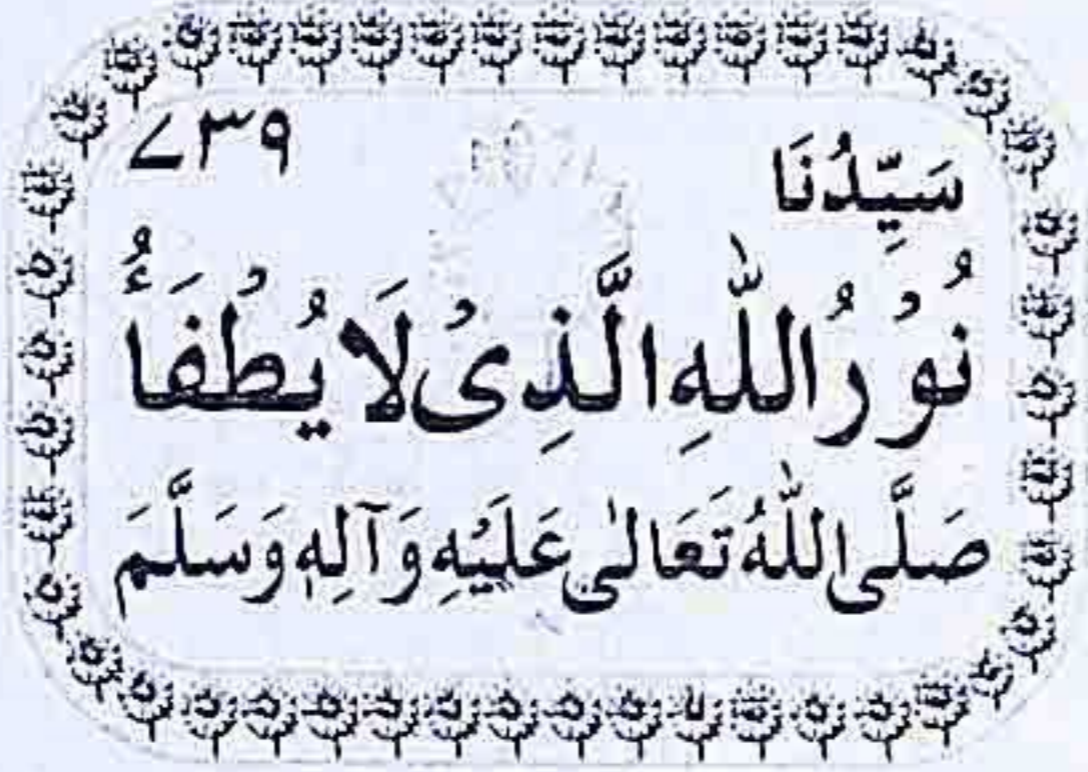 سَيِّدُنَا ۷۳۹
نُوْرُ اللّٰهِ الَّذِیْ لَا يُطْفَأُ
صَلَّی اللّٰهُ تَعَالٰی عَلَيْهِ وَآلِهٖ وَسَلَّمَ